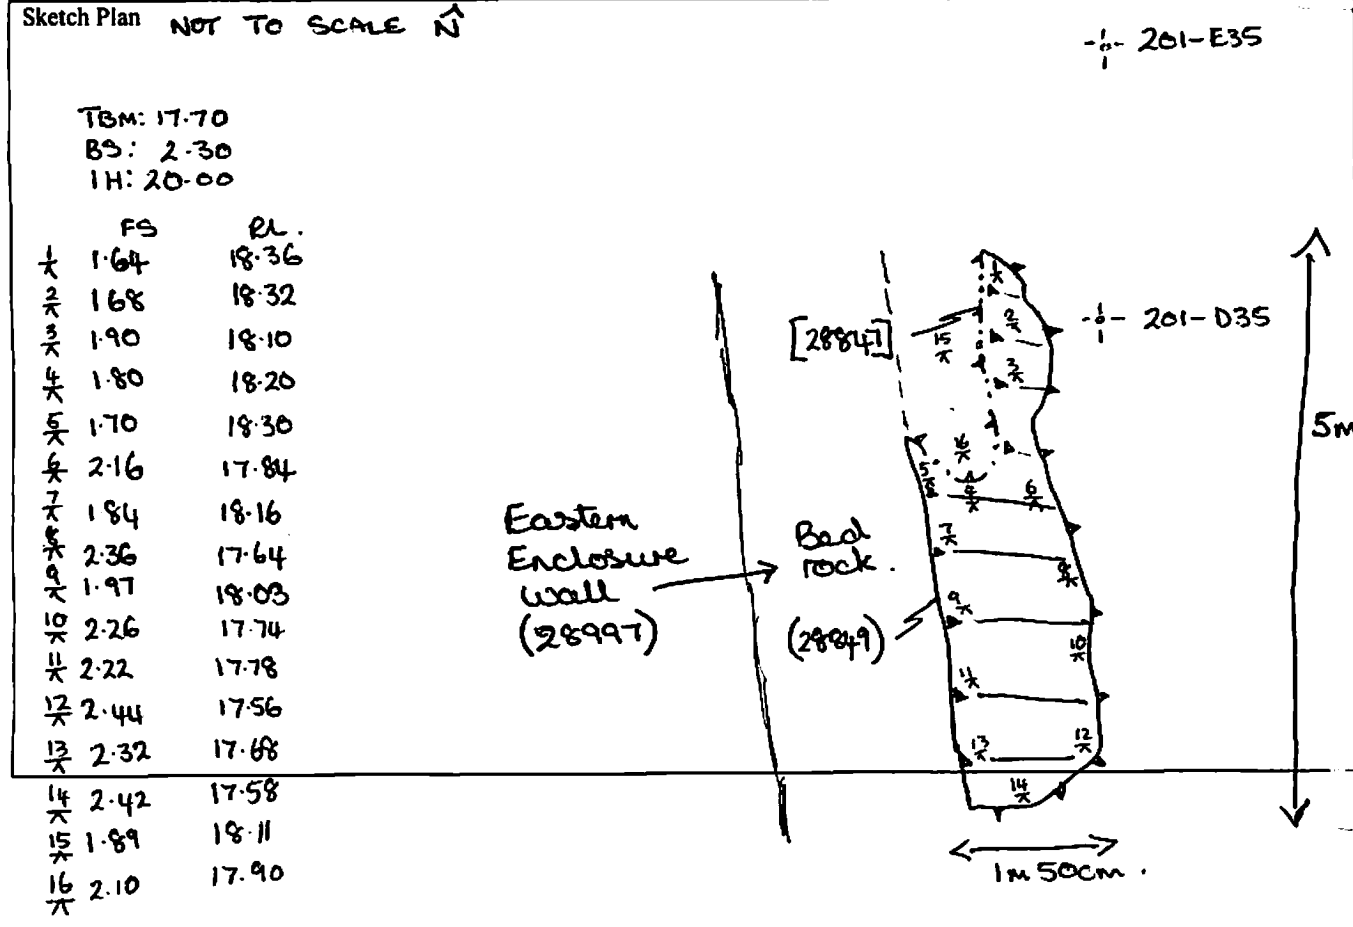 Sketch Plan NOT TO SCALE N
201-E35
TBM: 17.70
BS: 2.30
IH: 20.00
FS RL.
1 1.64 18.36
2 1 68 18.32
3 1.90 18.10
4 1.80 18.20
5 1.70 18.30
6 2.16 17.84
7 1 84 18.16
8 2.36 17.64
9 1.97 18.03
10 2.26 17.74
11 2.22 17.78
12 2.44 17.56
13 2.32 17.68
14 2.42 17.58
15 1.89 18.11
16 2.10 17.90
Eastern
Enclosure
wall
(28997)
[28847]
Bed
rock.
(28849)
1
2
15
3
16
5
4
6
7
8
9
10
11
13
12
14
201-D35
5m
1m 50cm.